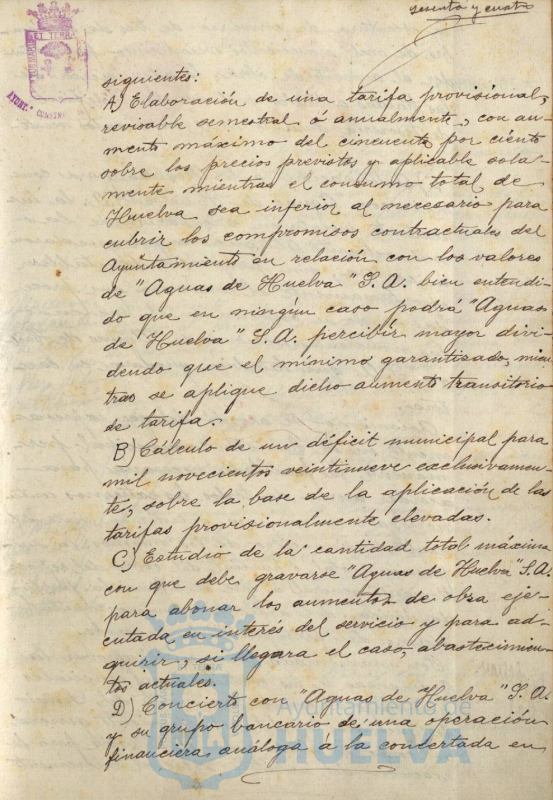 sesenta y cuatro
siguientes:
A) Elaboración de una tarifa provisional,
revisable semestral ó anualmente, con au-
mento máximo del cincuenta por ciento
sobre los precios previstos y aplicable sola-
mente mientras el consumo total de
Huelva sea inferior al necesario para
cubrir los compromisos contractuales del
Ayuntamiento en relación con los valores
de "Aguas de Huelva" S.A. bien entendi-
do que en ningún caso podrá "Aguas
de Huelva" S.A. percibir mayor divi-
dendo que el mínimo garantizado, mien-
tras se aplique dicho aumento transitorio
de tarifa.
B) Cálculo de un déficit municipal para
mil novecientos veintinueve exclusivamen-
te, sobre la base de la aplicación de las
tarifas provisionalmente elevadas.
C) Estudio de la cantidad total máxima
con que debe gravarse "Aguas de Huelva" S.A.
para abonar los aumentos de obra eje-
cutada en interés del servicio y para ad-
quirir, si llegara el caso, abastecimien-
tos actuales.
D) Concierto con "Aguas de Huelva" S.A.
y su grupo bancario de una operación
financiera análoga á la concertada en
Ayuntamiento de
HUELVA